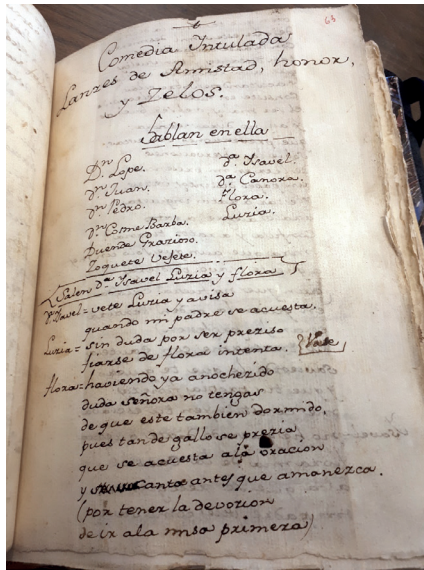 63
Comedia Intulada
Lanzes de Amistad, honor,
y Zelos.
hablan en ella
Dn. Lope.
dn. Juan.
dn. Pedro.
dn. Cosme Barba.
Duende Grazioso.
Zoquete Vejete.
da. Isavel.
da. Canora.
Flora.
Luzia.
Salen da. Isavel Luzia y flora
da. Isavel= vete Luzia y avisa
quando mi padre se acuesta.
Luzia= sin duda por ser preziso
fiarse de flora intenta. Vase
flora= haviendo ya anochezido
duda señora no tengas
de que este tambien dormido,
pues tan de gallo se prezia
que se acuesta ala orazion
y canta antes que amanezca.
(por tener la devozion
de ir ala misa primera)